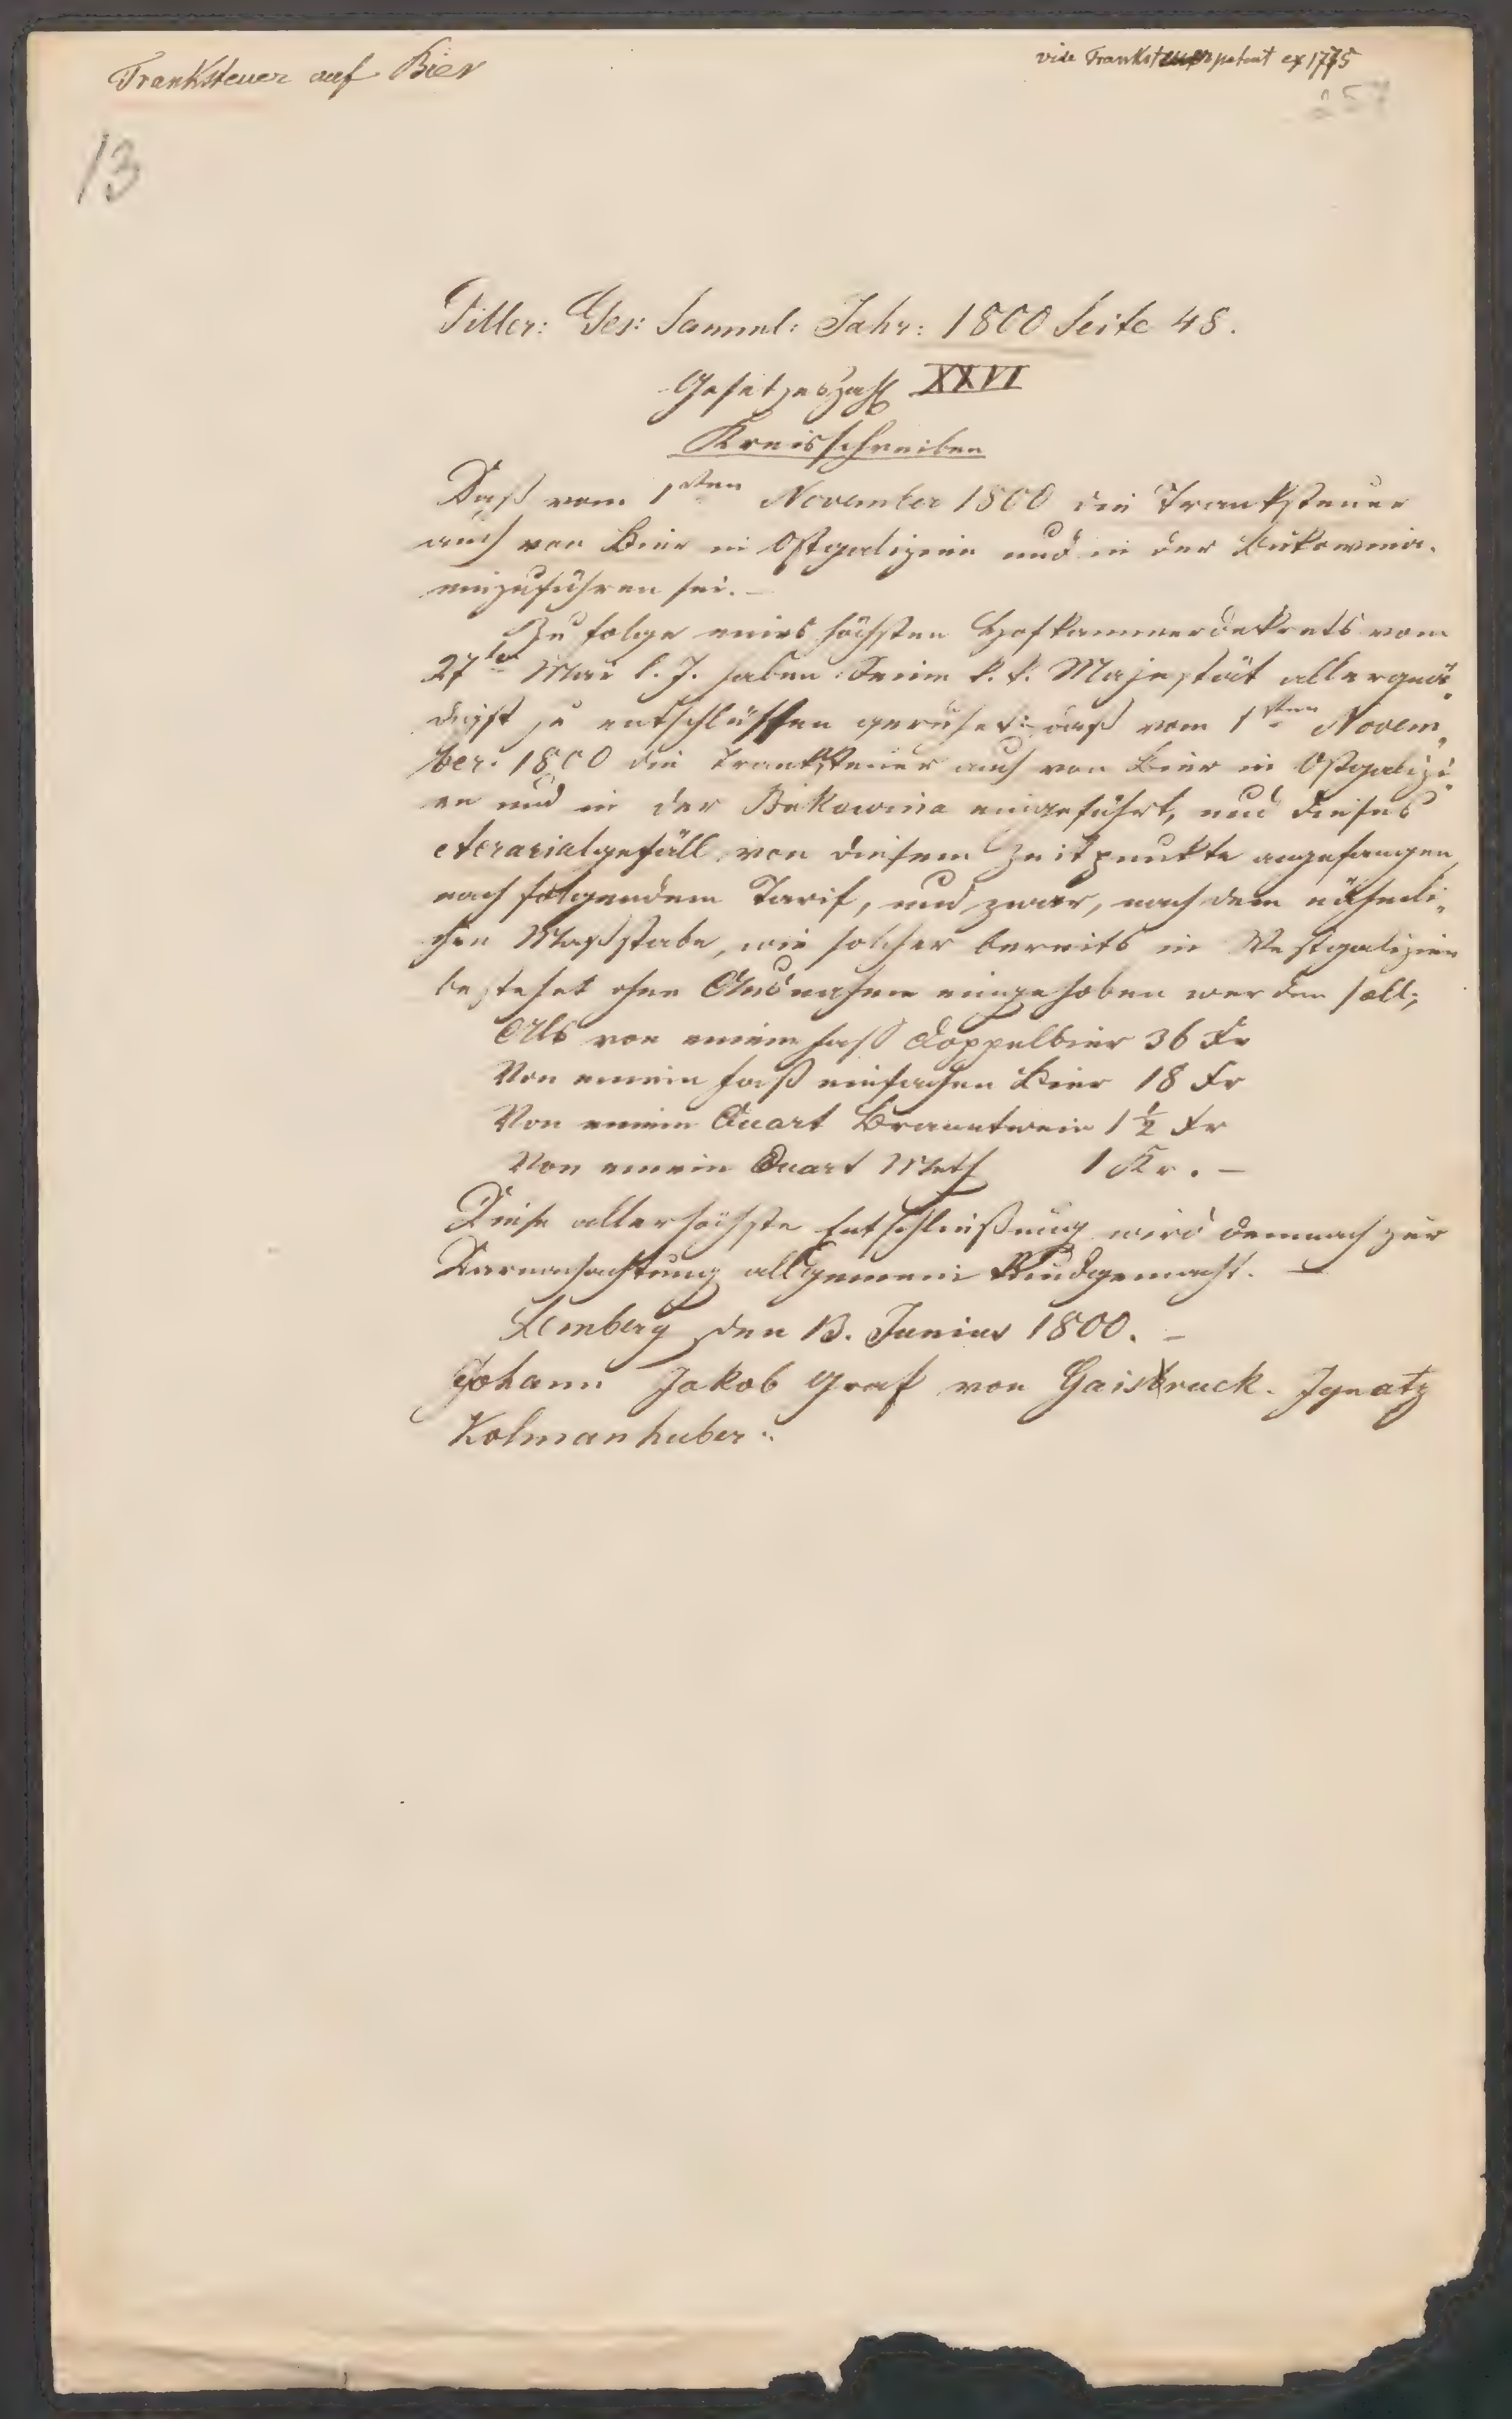 Tranksteuer auf Bier
vide Tranksteuerpatent ex 1775
257
13
Piller: Ges: Samml: Jahr: 1800 Seite 48.
Gesetzeszahl XXVI
Kreisschreiben
Daß vom 1sten November 1800 die Tranksteuer
auch von Bier in Ostgalizien und in der Bukowina
einzuführen sei. –
Zu folge eines höchsten Hofkammerdekrets vom
27te Mai l. J. haben Seine k. k. Majestät allergnä-
digst zu entschlüssen geruhet: daß vom 1sten Novem-
ber. 1800 die Tranksteuer auch von Bier in Ostgalizi-
en und in der Bukowina eingeführt, und dieses
Aerarialgefäll von diesem Zeitpunkte angefangen,
nach folgendem Tarif, und zwar, nach dem nähmli-
chen Maßstabe, wie solcher bereits in Westgalizien
bestehet ohne Ausnahme eingehoben werden soll;
Als von einem Faß Doppelbier 36 Kr
Von einem Faß einfachen Bier 18 Kr
Von einem Quart Branntwein 1 ½ Kr
Von einem Quart Meth 1 Kr. –
Diese allerhöchste Entschließung wird demnach zur
Darnachachtung allgemein kundgemacht. –
Lemberg den 13. Junius 1800. –
Johann Jakob Graf von Gaisruck. Ignatz
Kolmanhuber